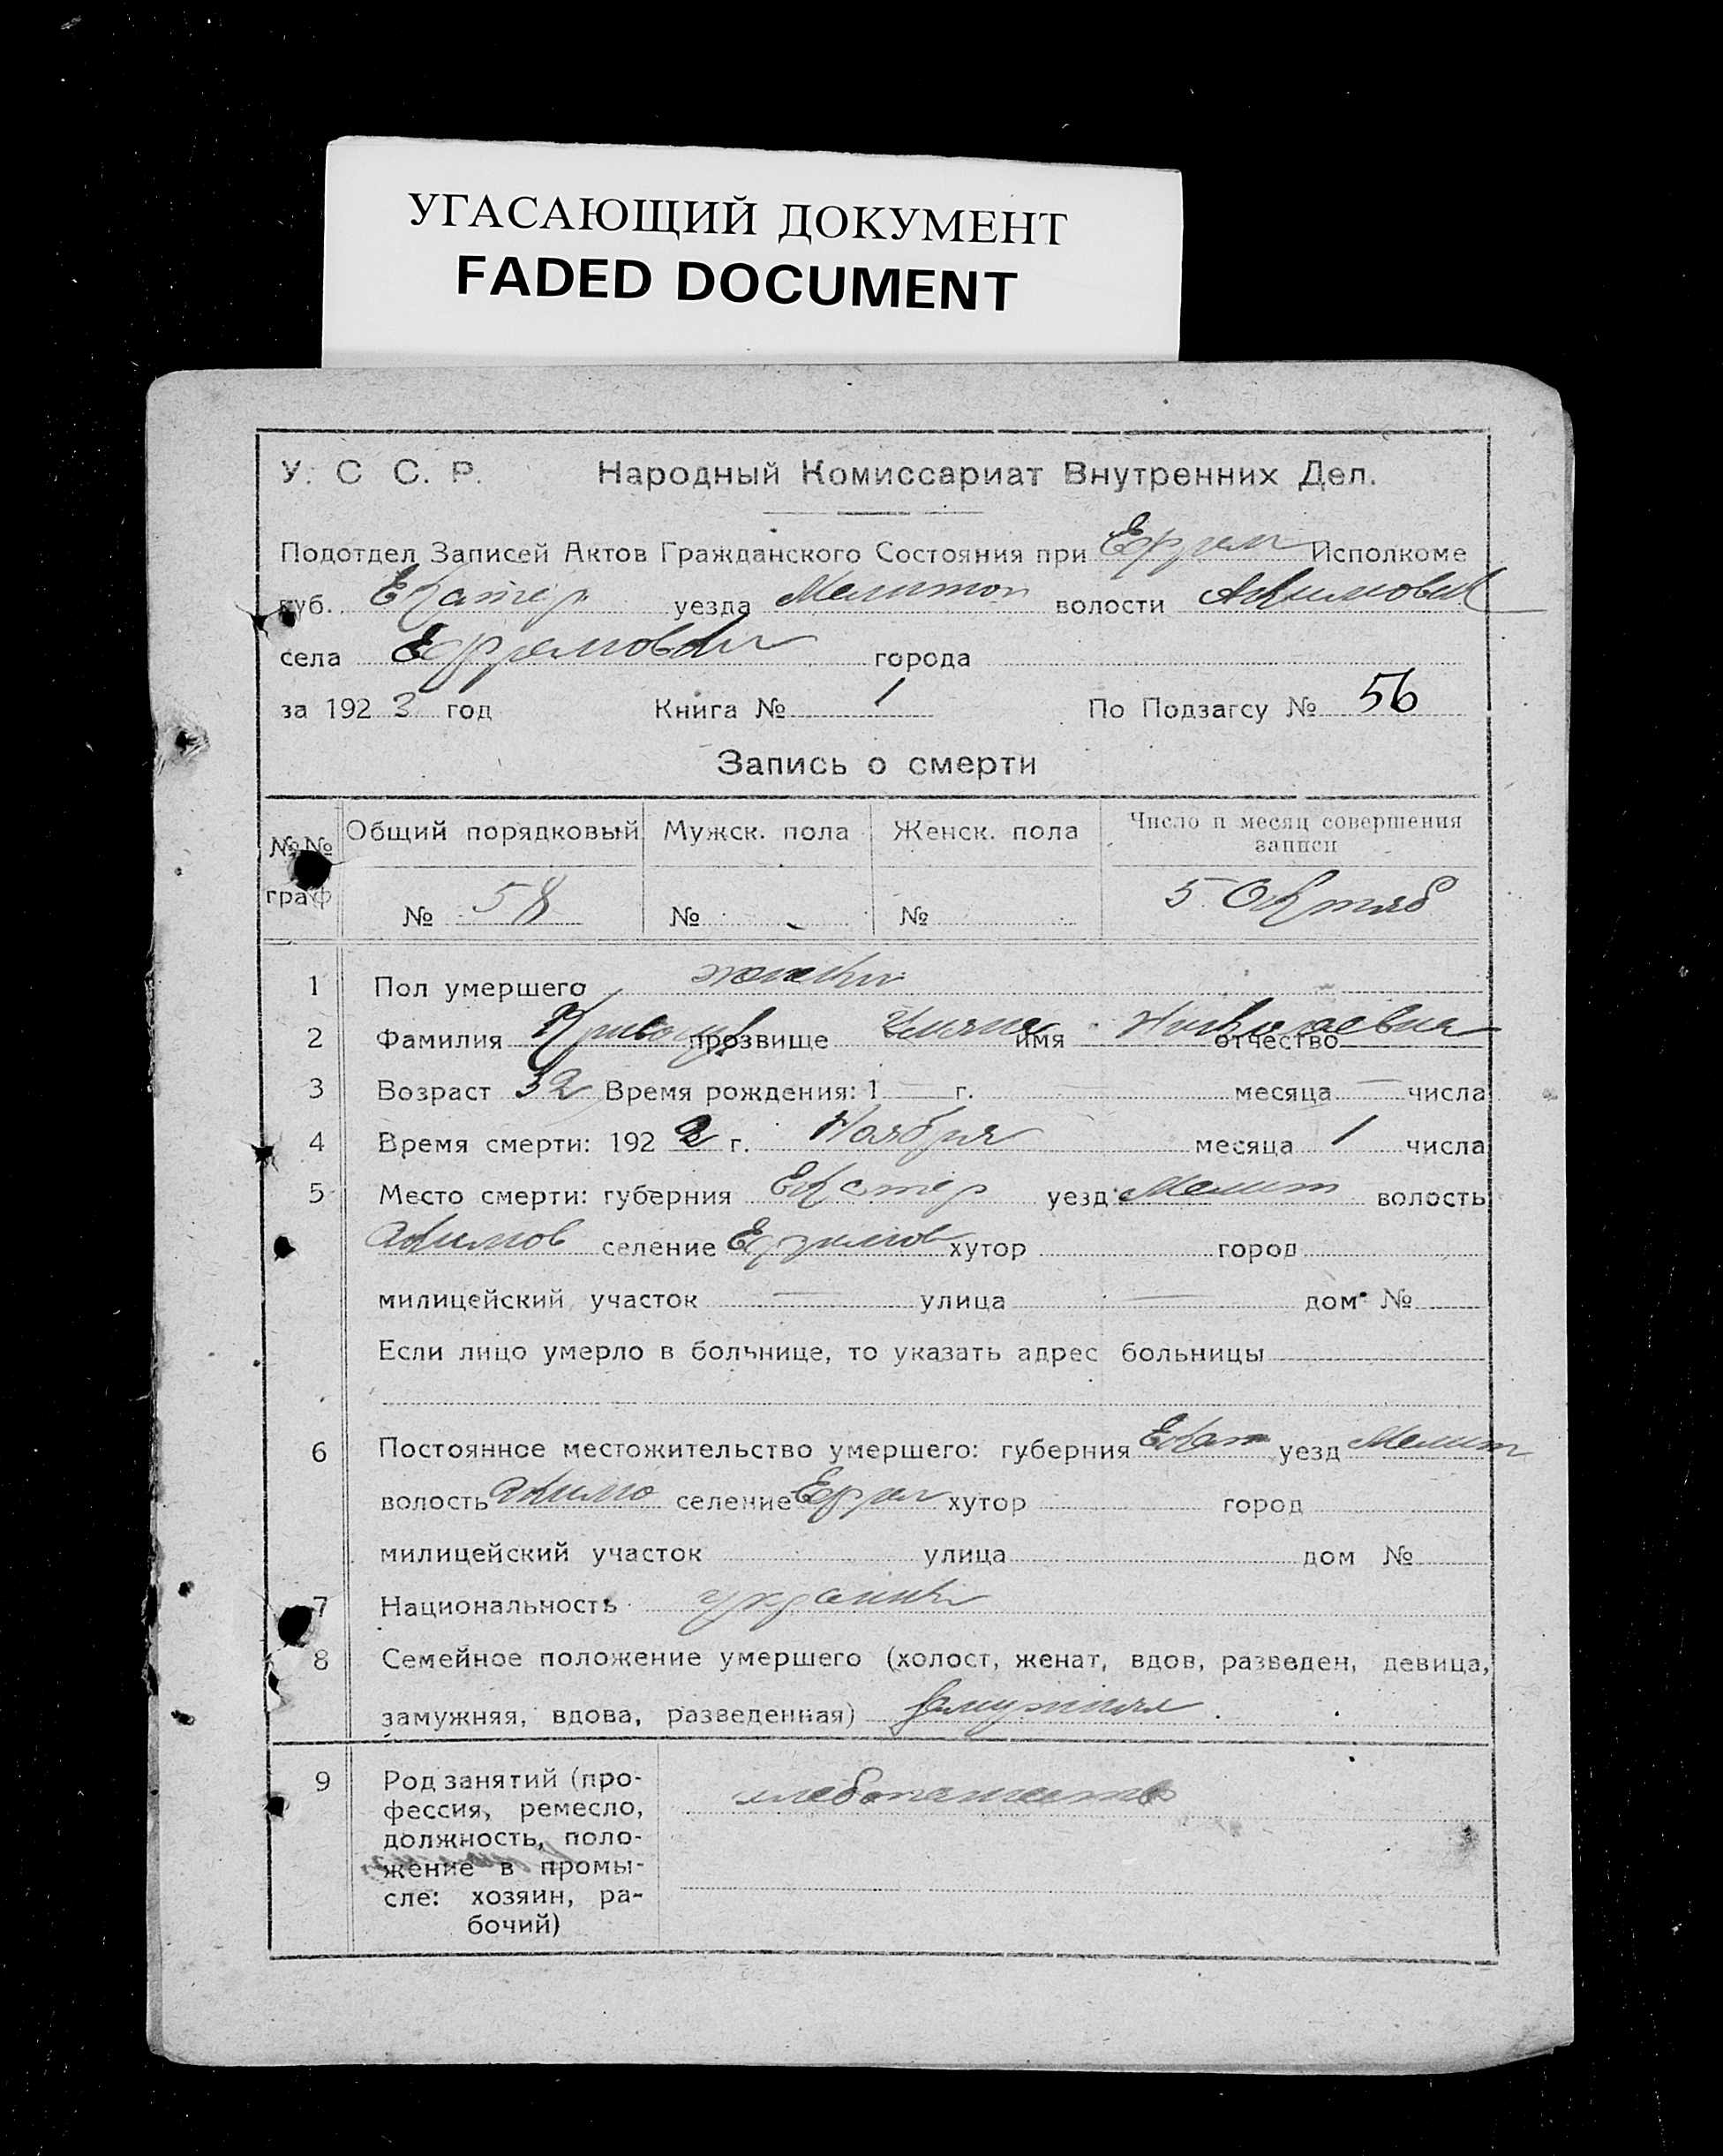 УГАСАЮЩИЙ ДОКУМЕНТ
FADED DOCUMENT
У. С С. Р. Народный Комиссариат Внутренних Дел.
Подотдел Записей Актов Гражданского Состояния при Ефрем Исполкоме
губ. Екатер уезда Мелитоп волости Акимовск
села Ефремовки города
за 1923 год Книга № 1 По Подзагсу № 56
Запись о смерти
№№ граф Общий порядковый Мужск. пола Женск. пола Число и месяц совершения записи
№ 58 № № 5 Октяб
1 Пол умершего женский
2 Фамилия прозвище имя Николаевна отчество
3 Возраст 32 Время рождения: 1 — г. — месяца — числа
4 Время смерти: 1922 г. Ноября месяца 1 числа
5 Место смерти: губерния Екатер уезд Мелит волость
Акимов селение Ефремов хутор город
милицейский участок — улица — дом №
Если лицо умерло в больнице, то указать адрес больницы
6 Постоянное местожительство умершего: губерния Екат уезд Мелит
волость Акимо селение Ефрем хутор город
милицейский участок улица дом №
7 Национальность украинк
8 Семейное положение умершего (холост, женат, вдов, разведен, девица,
замужняя, вдова, разведенная) Замужняя
9 Род занятий (про- хлебопашество
фессия, ремесло,
должность, поло-
жение в промы-
сле: хозяин, ра-
бочий)